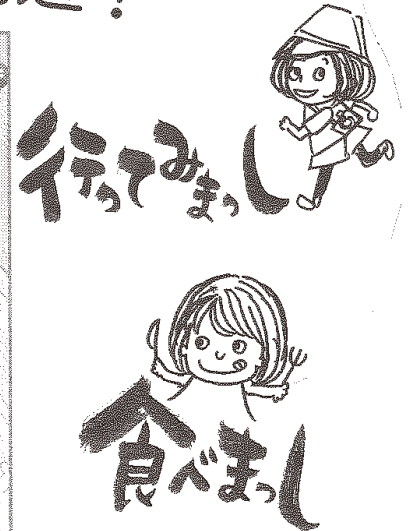 ！
行ってみまっし
食べまっし